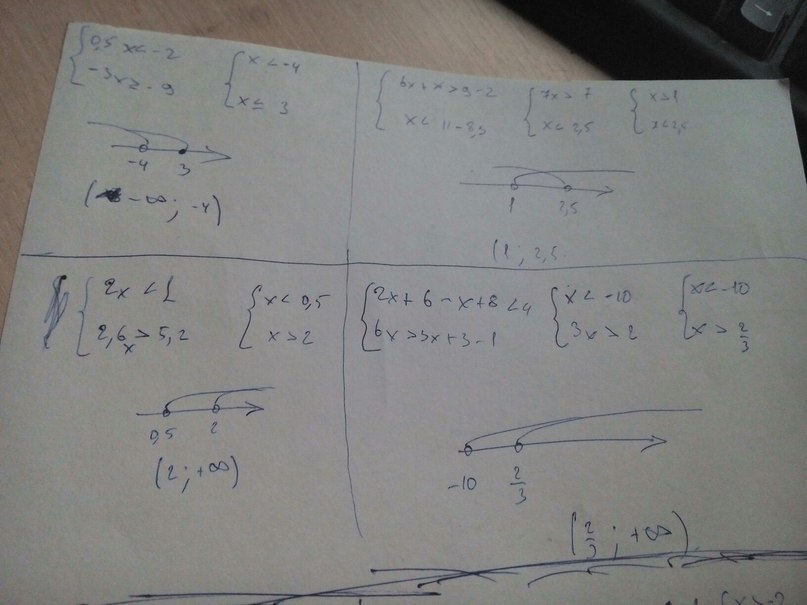 { 0,5x < -2
-3x ≥ -9
{ x < -4
x ≤ 3
-4 3
( -∞; -4)
{ 6x+x > 9-2
x < 11-8,5
{ 7x > 7
x < 2,5
{ x > 1
x < 2,5
1 2,5
(1; 2,5
{ 2x < 1
2,6x > 5,2
{ x < 0,5
x > 2
0,5 2
(2; +∞)
{ 2x+6-x+8 < 4
6x > 3x+3-1
{ x < -10
3x > 2
{ x < -10
x > 2/3
-10 2/3
(2/3; +∞)